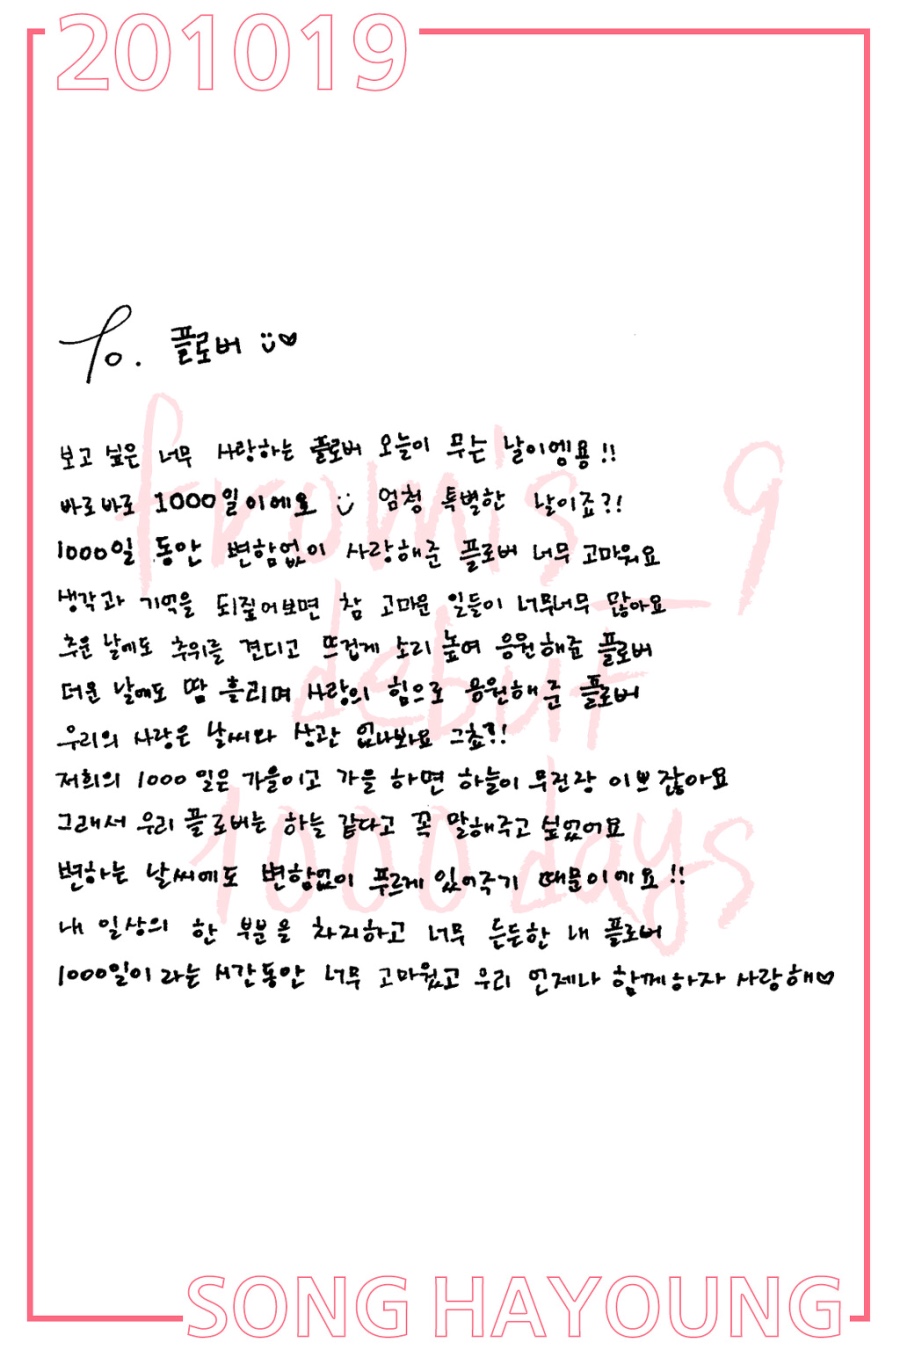 201019
To. 플로버 :)♡
보고 싶은 너무 사랑하는 플로버 오늘이 무슨 날이엥용!!
바로바로 1000일이에요 :) 엄청 특별한 날이죠?!
1000일 동안 변함없이 사랑해준 플로버 너무 고마워요
생각과 기억을 되짚어보면 참 고마운 일들이 너무너무 많아요
추운 날에도 추위를 견디고 뜨겁게 소리 높여 응원해준 플로버
더운 날에도 땀 흘리며 사랑의 힘으로 응원해준 플로버
우리의 사랑은 날씨와 상관 없나봐요 그쵸?!
저희의 1000일은 가을이고 가을 하면 하늘이 무진장 이쁘잖아요
그래서 우리 플로버는 하늘 같다고 꼭 말해주고 싶었어요
변하는 날씨에도 변함없이 푸르게 있어주기 때문이에요!!
내 일상의 한 부분을 차지하고 너무 든든한 내 플로버
1000일이라는 시간동안 너무 고마웠고 우리 언제나 함께하자 사랑해♡
fromis_9
debut
1000days
SONG HAYOUNG